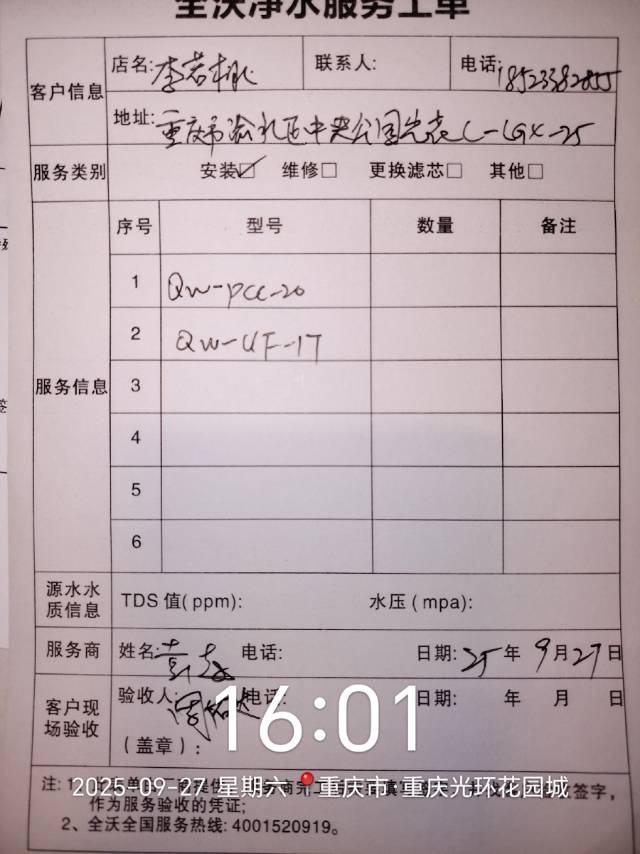 全沃净水服务工单
客户信息
店名: 李若桃
联系人:
电话: 18523382855
地址: 重庆市渝北区中央公园光环L-LGX-25
服务类别
安装☑ 维修□ 更换滤芯□ 其他□
服务信息
序号 型号 数量 备注
1 QW-PCC-20
2 QW-UF-1T
3
4
5
6
源水水质信息
TDS 值(ppm): 水压(mpa):
服务商 姓名: 电话: 日期: 25 年 9 月 27 日
客户现场验收
验收人: 电话: 日期: 年 月 日
(盖章):
16:01
2025-09-27 星期六 重庆市·重庆光环花园城
注: 1、 签字,
作为服务验收的凭证;
2、全沃全国服务热线: 4001520919。